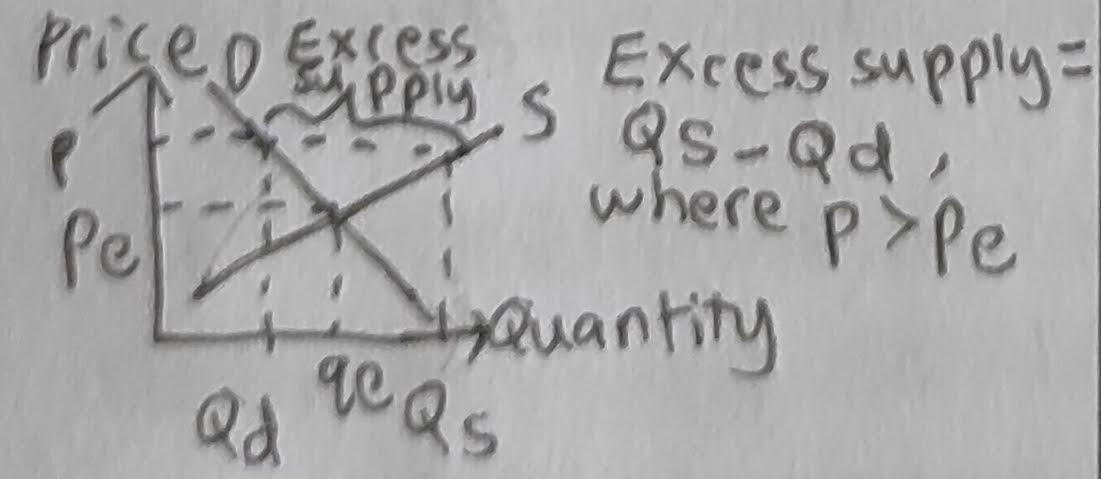 Price D Excess
supply
S
P
Pe
Quantity
Qd
qe
Qs
Excess supply=
Qs-Qd,
where P>Pe